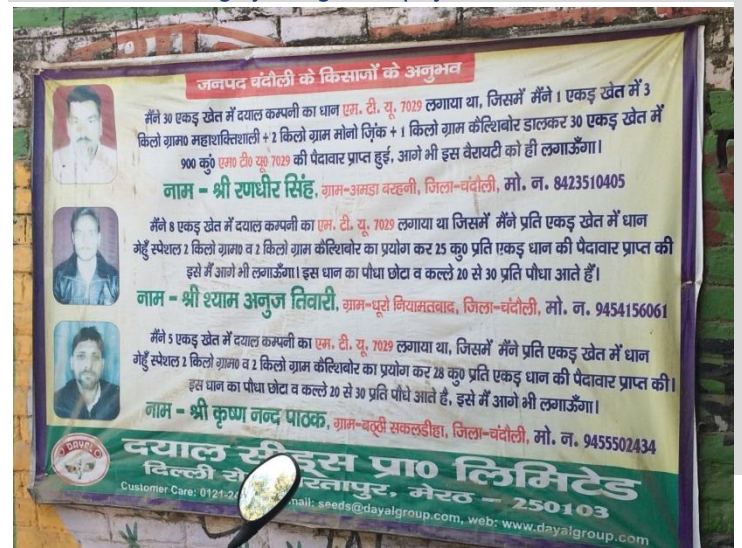 जनपद चंदौली के किसानों के अनुभव
मैंने 30 एकड़ खेत में दयाल कम्पनी का धान एम. टी. यू. 7029 लगाया था, जिसमें मैंने 1 एकड़ खेत में 3
किलो ग्राम0 महाशक्तिशाली + 2 किलो ग्राम मोनो ज़िंक + 1 किलो ग्राम कैल्शिबोर डालकर 30 एकड़ खेत में
900 कु0 एम0 टी0 यू0 7029 की पैदावार प्राप्त हुई, आगे भी इस वैरायटी को ही लगाऊँगा।
नाम - श्री रणधीर सिंह, ग्राम-अमडा बरहनी, जिला-चंदौली, मो. न. 8423510405
मैंने 8 एकड़ खेत में दयाल कम्पनी का एम. टी. यू. 7029 लगाया था जिसमें मैंने प्रति एकड़ खेत में धान
गेहूँ स्पेशल 2 किलो ग्राम0 व 2 किलो ग्राम कैल्शिबोर का प्रयोग कर 25 कु0 प्रति एकड़ धान की पैदावार प्राप्त की
इसे मैं आगे भी लगाऊँगा। इस धान का पौधा छोटा व कल्ले 20 से 30 प्रति पौधा आते हैं।
नाम - श्री श्याम अनुज तिवारी, ग्राम-धूरो नियामतवाद, जिला-चंदौली, मो. न. 9454156061
मैंने 5 एकड़ खेत में दयाल कम्पनी का एम. टी. यू. 7029 लगाया था, जिसमें मैंने प्रति एकड़ खेत में धान
गेहूँ स्पेशल 2 किलो ग्राम0 व 2 किलो ग्राम कैल्शिबोर का प्रयोग कर 28 कु0 प्रति एकड़ धान की पैदावार प्राप्त की।
इस धान का पौधा छोटा व कल्ले 20 से 30 प्रति पौधे आते है, इसे मैं आगे भी लगाऊँगा।
नाम - श्री कृष्ण नन्द पाठक, ग्राम-बठ्ठी सकलडीहा, जिला-चंदौली, मो. न. 9455502434
DAYAL
दयाल सीड्स प्रा0 लिमिटेड
दिल्ली मेरठ - 250103
Customer Care: seeds@dayalgroup.com, web: www.dayalgroup.com